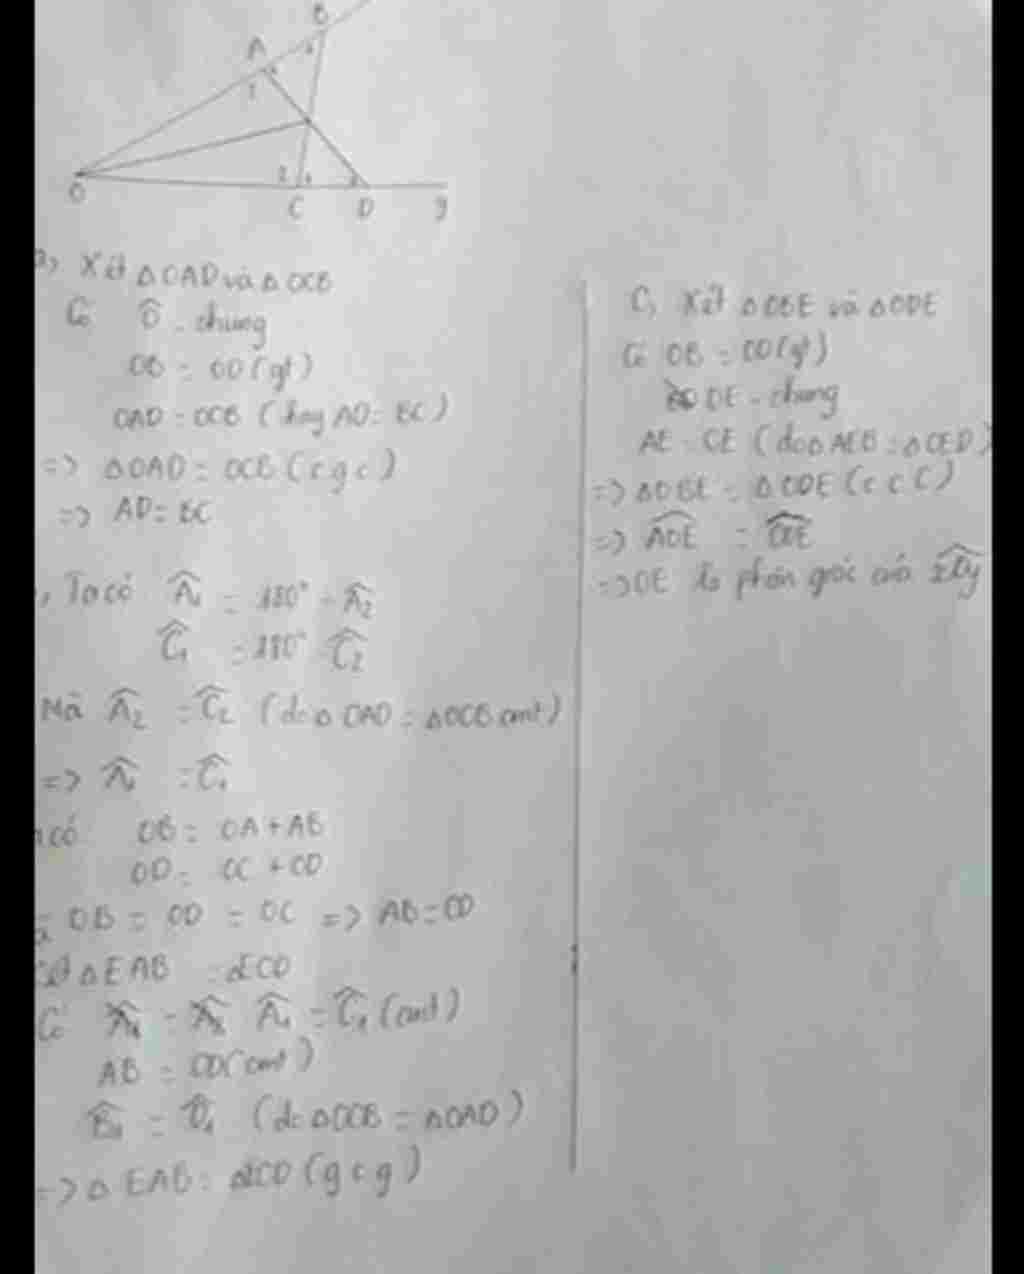 B
A
1
2 1
O
C D y
a, Xét △OAD và △OCB
Có Ô - chung
OB = OD (gt)
OAD = OCB (hay AD = BC)
=> △OAD = OCB (c g c)
=> AD = BC
, Ta có Â₁ = 180° - Â₂
Ĉ₁ = 180° Ĉ₂
Mà Â₂ = Ĉ₂ (do △ OAD = △OCB cmt)
=> Â₁ = Ĉ₁
có OB = OA + AB
OD = OC + CD
OB = OD = OC => AB = CD
△EAB = △ECD
Có Â₁ = Ĉ₁ (cmt)
AB = CD (cmt)
B̂₁ = D̂₁ (do △OCB = △OAD)
=> △ EAB = △ECD (g c g)
C, Xét △OBE và △ODE
Có OB = OD (gt)
OE - chung
AE = CE (do △AEB = △CED)
=> △OBE = △ODE (c c c)
=> AOE = COE
=> OE là phân giác của xOy